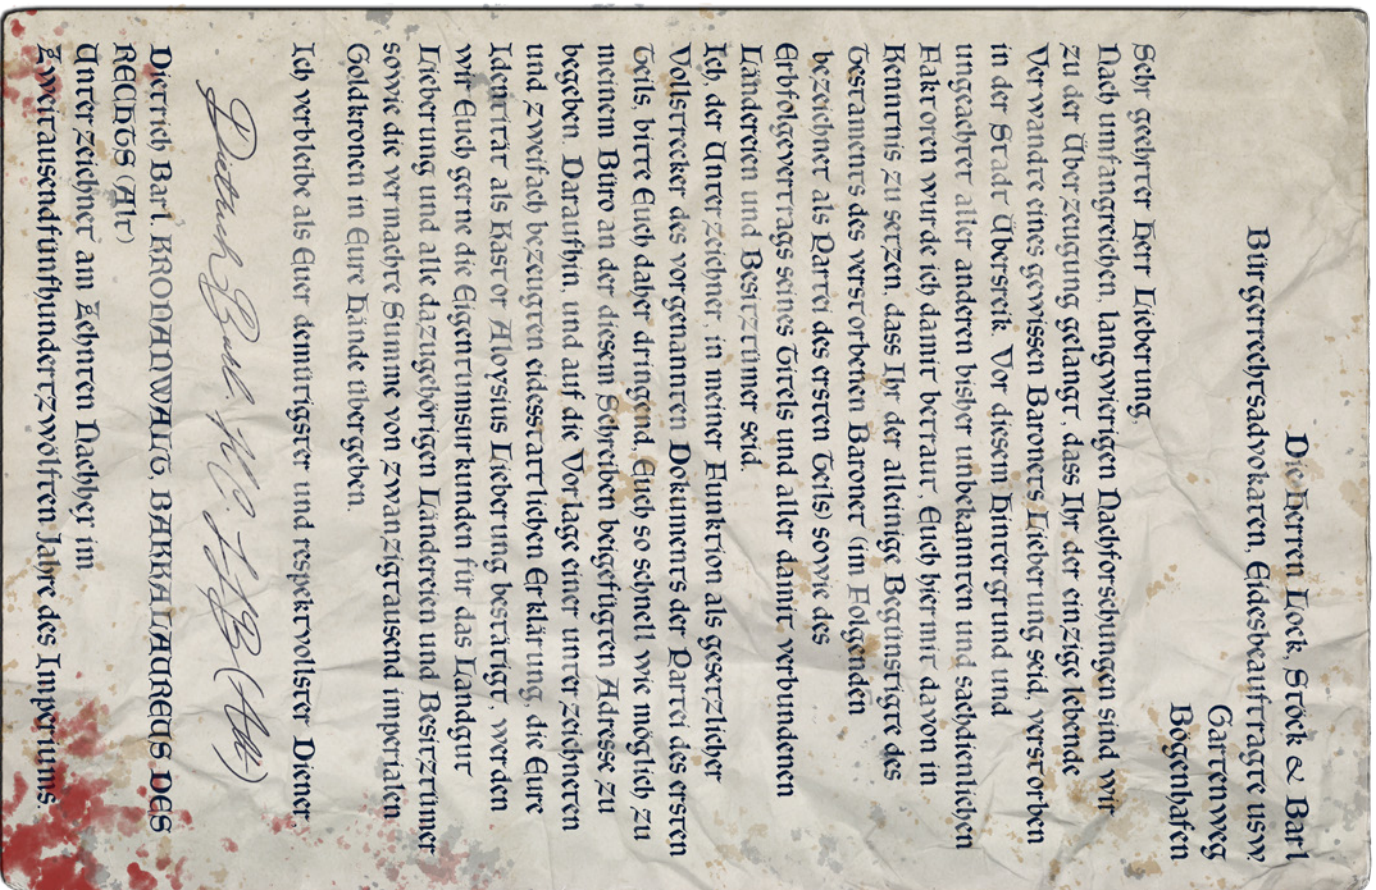 Die Herren Lock, Stöck & Barl
Bürgerrechtsadvokaten, Eidesbeauftragte usw.
Gartenweg
Bögenhafen
Sehr geehrter Herr Lieberung,
Nach umfangreichen, langwierigen Nachforschungen sind wir
zu der Überzeugung gelangt, dass Ihr der einzige lebende
Verwandte eines gewissen Baronets Lieberung seid, verstorben
in der Stadt Übersreik. Vor diesem Hintergrund und
ungeachtet aller anderen bisher unbekannten und sachdienlichen
Faktoren wurde ich damit betraut, Euch hiermit davon in
Kenntnis zu setzen, dass Ihr der alleinige Begünstigte des
Testaments des verstorbenen Baronet (im Folgenden
bezeichnet als Partei des ersten Teils) sowie des
Erbfolgevertrags seines Titels und aller damit verbundenen
Ländereien und Besitztümer seid.
Ich, der Unterzeichner, in meiner Funktion als gesetzlicher
Vollstrecker des vorgenannten Dokuments der Partei des ersten
Teils, bitte Euch daher dringend, Euch so schnell wie möglich zu
meinem Büro an der diesem Schreiben beigefügten Adresse zu
begeben. Daraufhin, und auf die Vorlage einer unterzeichneten
und zweifach bezeugten eidesstattlichen Erklärung, die Eure
Identität als Kastor Aloysius Lieberung bestätigt, werden
wir Euch gerne die Eigentumsurkunden für das Landgut
Lieberung und alle dazugehörigen Ländereien und Besitztümer
sowie die vermachte Summe von zwanzigtausend imperialen
Goldkronen in Eure Hände übergeben.
Ich verbleibe als Euer demütigster und respektvollster Diener,
Dietrich Barl. KA. LLB (Alt)
Dietrich Barl, KRONANWALT, BAKKALAUREUS DES
RECHTS (Alt)
Unterzeichnet am Zehnten Nachhex im
Zweitausendfünfhundertzwölften Jahre des Imperiums.